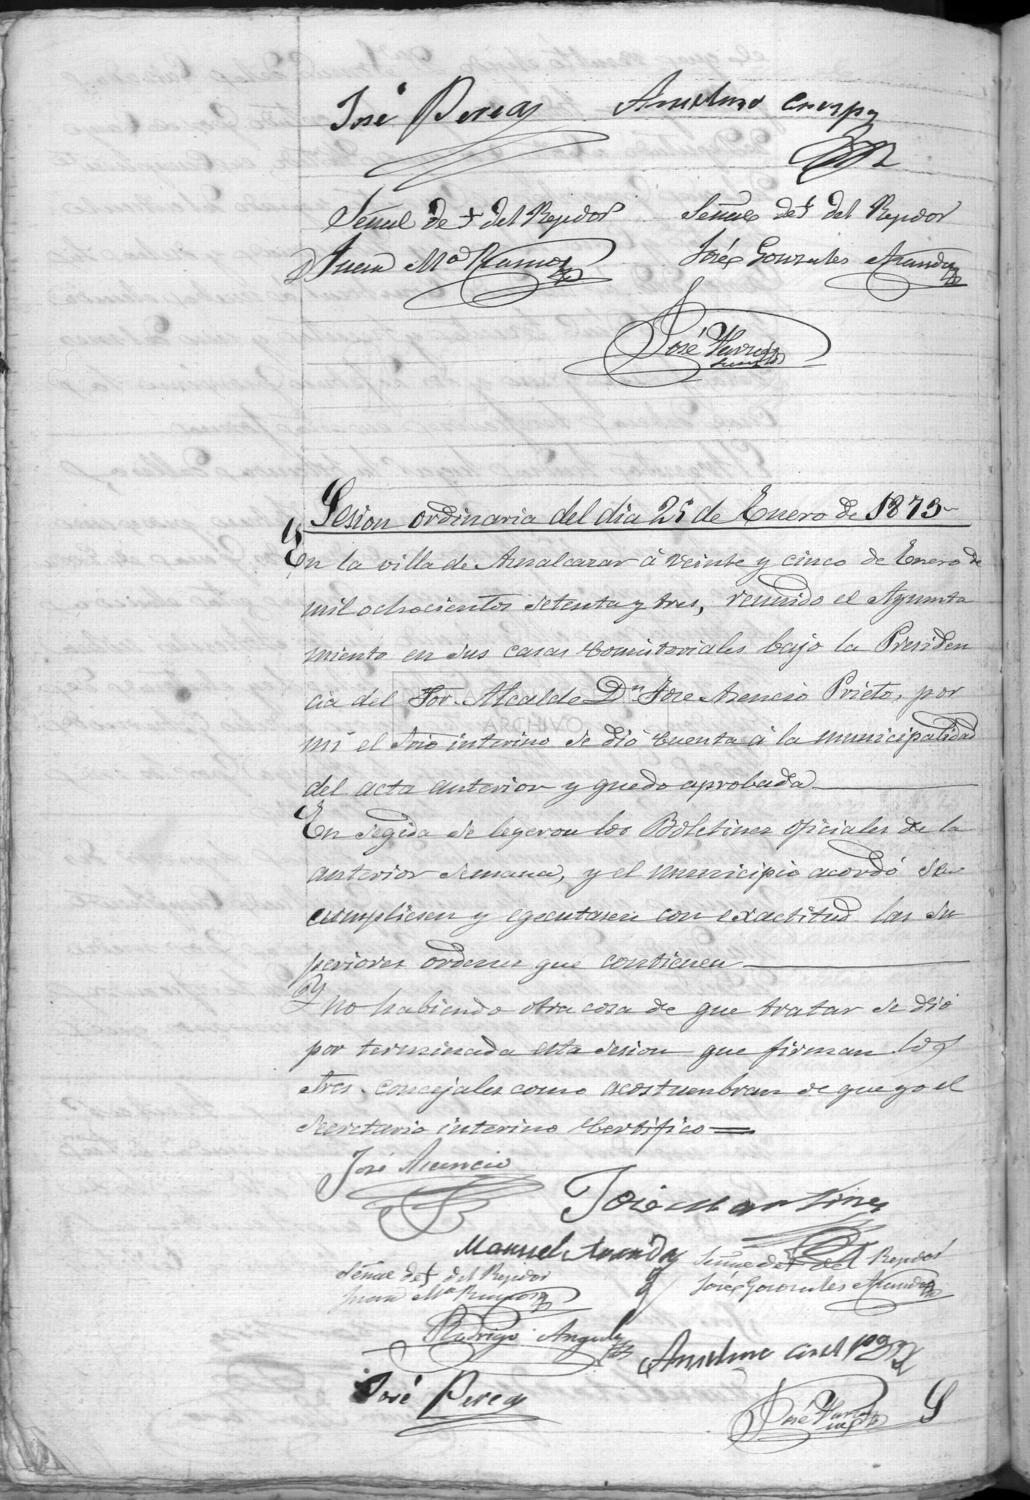 José Perea Anselmo Crespo
Señal de + del Rejidor Señal de + del Rejidor
Juan Mª Ramos José Gonzales Aranda
José
Sesion ordinaria del dia 25 de Enero de 1873
En la villa de Aznalcazar á veinte y cinco de Enero de
mil ochocientos setenta y tres, reunido el Ayunta
miento en sus casas Consistoriales bajo la Presiden
cia del Sor. Alcalde Dn. Jose Asencio Prieto, por
mi el Srio interino se dió cuenta á la municipalidad
del acta anterior y quedo aprobada
En segida se leyeron los Boletines oficiales de la
anterior semana, y el municipio acordó se
cumpliesen y egecutasen con exactitud las su
periores ordenes que contienen
Y no habiendo otra cosa de que tratar se dió
por terminada esta sesion que firman los
Sres. concejales como acostumbran de que yo el
Secretario interino Certifico=
José Asencio
José Martinez
Manuel Aranda
Señal de + del Rejidor Señal de + del Rejidor
Juan Mª Ramos José Gonzales Aranda
Rodrigo Angulo
Anselmo Crespo
José Perea
José